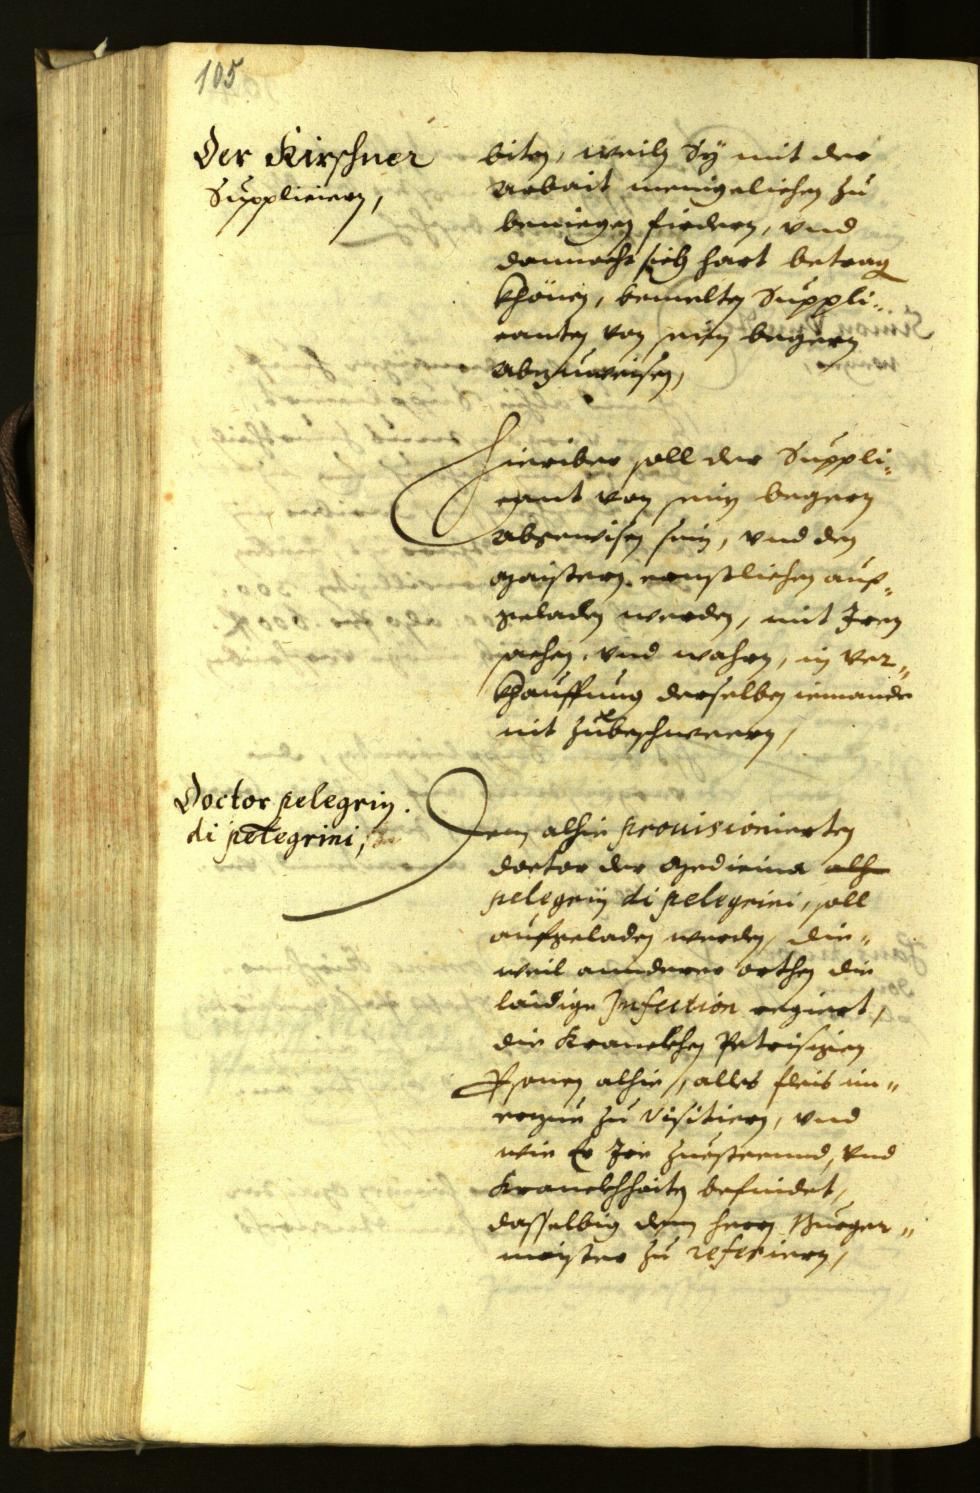 105
Der Kirschner
Suppliciern,
biten, weiln Sÿ mit der
Arbait menigelichen zu
beniegen fiedern, vnd
dannocht sich hart betrag
khönen, bemelten Suppli„
canten von sein begern
abzuweisen,
Hieriber soll der Suppli„
cant von sein begern
abgewisen sein, vnd den
Maistern ernstlichen auf„
geladen werden, mit Iren
sachen vnd wahrn, in ver„
khauffung derselben iemande
nit zubeschweern,
Doctor pelegrin
di pelegrini,
Dem alhie prouisionierten
doctor der Medicina alh
pelegrin di pelegrini, soll
aufgeladen werden, die„
weil annderer orthen die
laidige Infection regiert,
die Kranckhen
Personen alhie, alles fleis
zu visitiern, vnd
wie Er Ire zuestennd, vnd
Kranckhhaiten befindet,
dasselbig dem herrn Burger„
maister zu referiern,